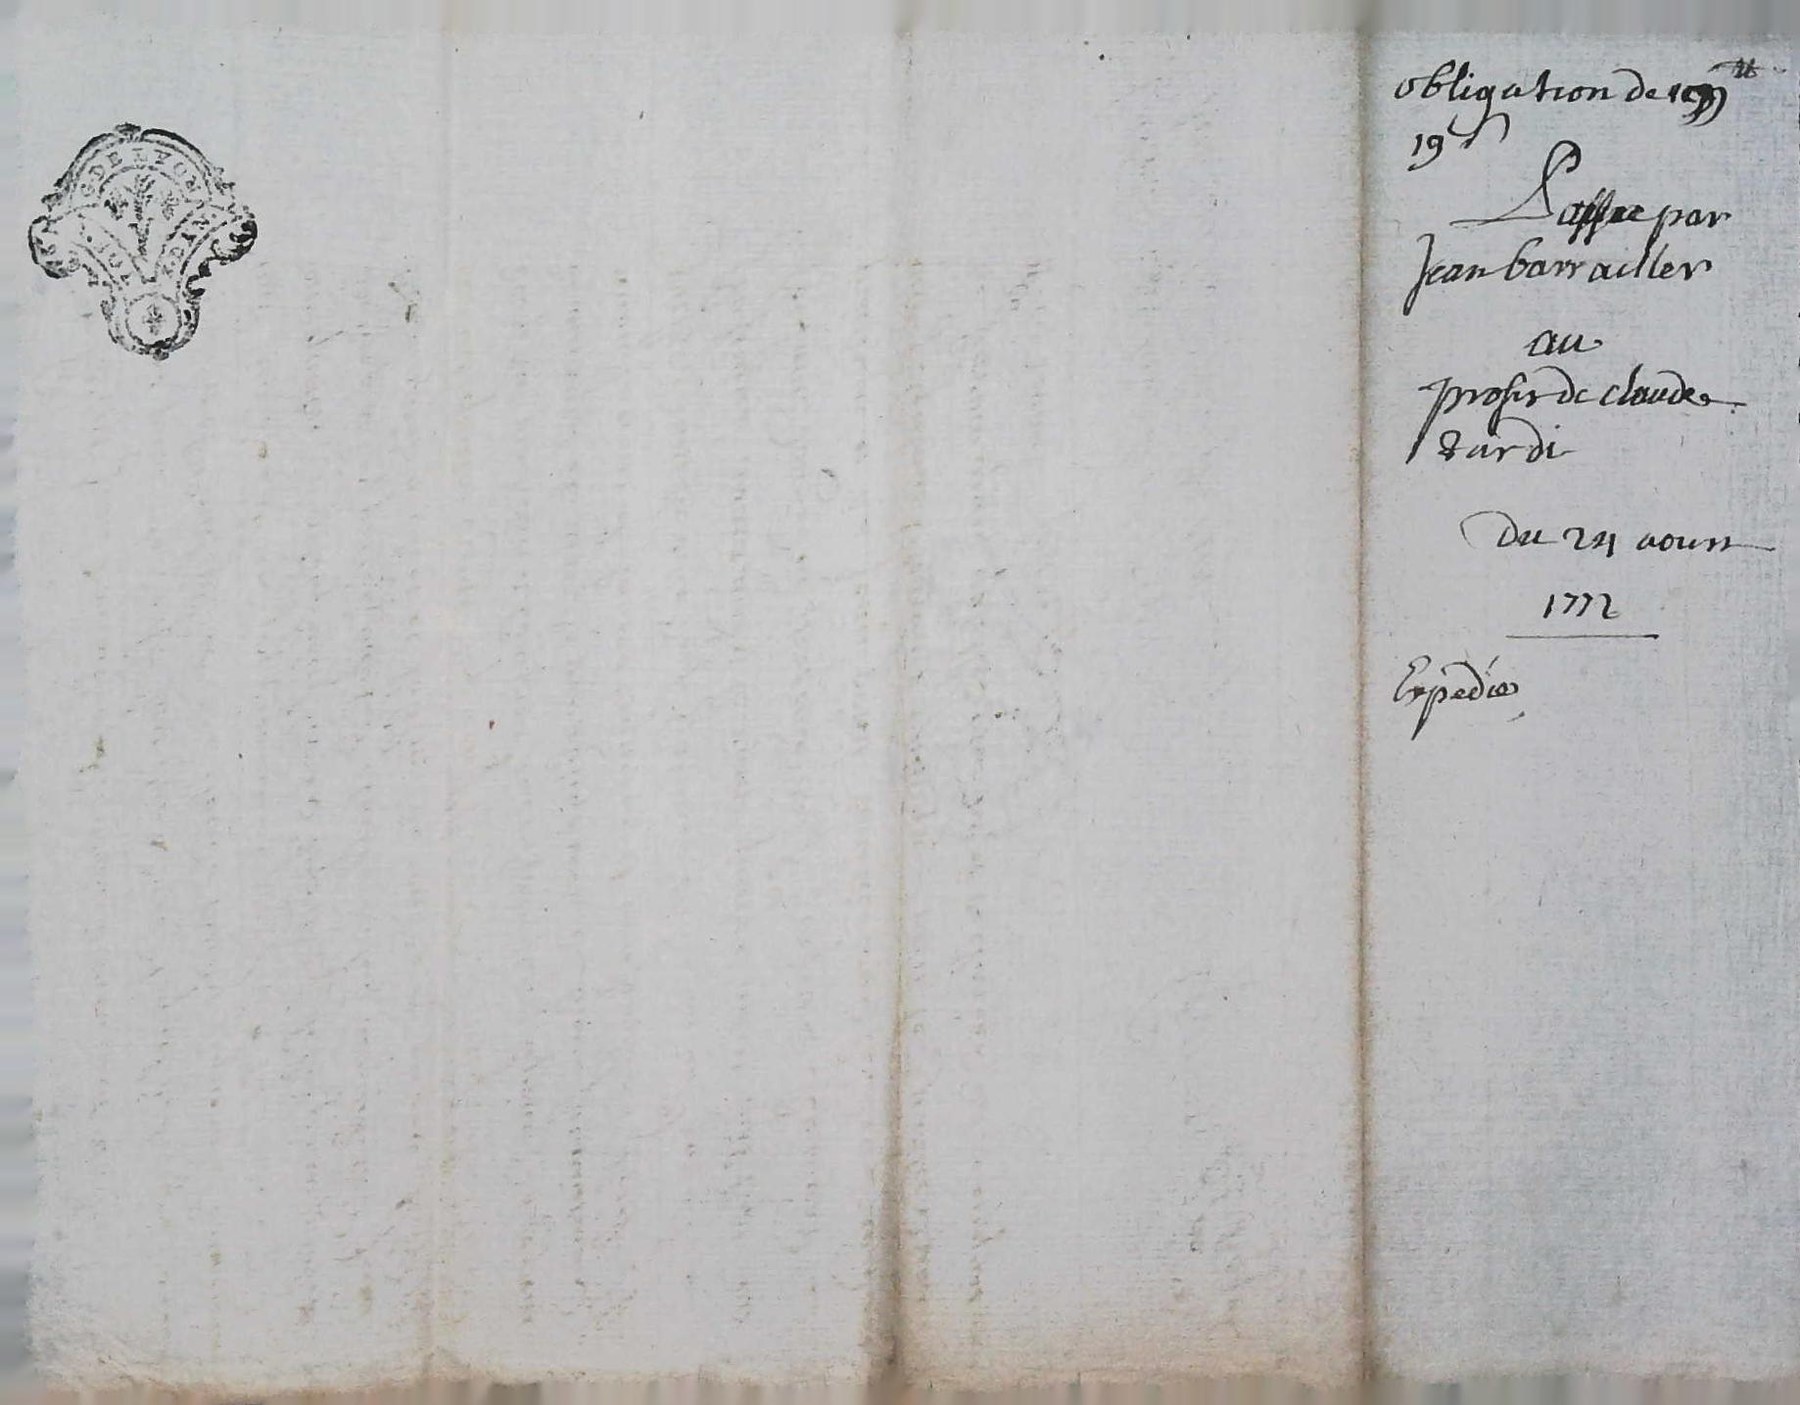 G DE LYON
obligation de 199ᵗᵗ
19ˢ
Passee par
Jean barrailler
au
profit de claude
tardi
Du 24 aoust
1772
Expedié